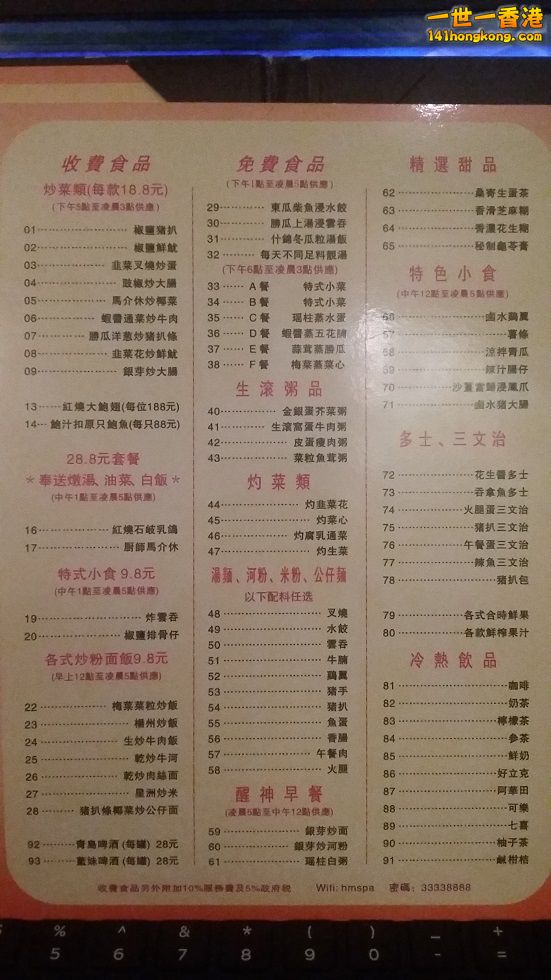 一世一香港
141hongkong.com
收費食品
炒菜類(每款18.8元)
(下午5點至凌晨3點供應)
01 椒鹽豬扒
02 椒鹽鮮魷
03 韭菜叉燒炒蛋
04 豉椒炒大腸
05 馬介休炒椰菜
06 蝦醬通菜炒牛肉
07 勝瓜洋蔥炒豬扒條
08 韭菜花炒鮮魷
09 銀芽炒大腸
13 紅燒大鮑翅(每位188元)
14 鮑汁扣原只鮑魚(每只88元)
28.8元套餐
*奉送燉湯、油菜、白飯*
(中午1點至凌晨5點供應)
16 紅燒石岐乳鴿
17 廚師馬介休
特式小食 9.8元
(中午1點至凌晨5點供應)
19 炸雲吞
20 椒鹽排骨仔
各式炒粉面飯9.8元
(早上12點至凌晨5點供應)
22 梅菜菜粒炒飯
23 楊州炒飯
24 生炒牛肉飯
25 乾炒牛河
26 乾炒肉絲面
27 星洲炒米
28 豬扒條椰菜炒公仔面
92 青島啤酒 (每罐) 28元
93 藍妹啤酒 (每罐) 28元
免費食品
(下午1點至凌晨5點供應)
29 東瓜柴魚浸水餃
30 勝瓜上湯浸雲吞
31 什錦冬瓜粒湯飯
32 每天不同足料靚湯
(下午6點至凌晨3點供應)
33 A餐 特式小菜
34 B餐 特式小菜
35 C餐 瑶柱蒸水蛋
36 D餐 蝦醬蒸五花腩
37 E餐 蒜茸蒸勝瓜
38 F餐 梅菜蒸菜心
生滾粥品
40 金銀蛋芥菜粥
41 生滾窩蛋牛肉粥
42 皮蛋瘦肉粥
43 菜粒魚茸粥
灼菜類
44 灼韭菜花
45 灼菜心
46 灼腐乳通菜
47 灼生菜
湯麵、河粉、米粉、公仔麵
以下配料任选
48 叉燒
49 水餃
50 雲吞
51 牛腩
52 鷄翼
53 豬手
54 豬扒
55 魚蛋
56 香腸
57 午餐肉
58 火腿
醒神早餐
(凌晨5點至中午12點供應)
59 銀芽炒面
60 銀芽炒河粉
61 瑶柱白粥
精選甜品
62 桑寄生蛋茶
63 香滑芝麻糊
64 香濃花生糊
65 秘制龜苓膏
特色小食
(中午12點至凌晨5點供應)
66 鹵水鷄翼
67 薯條
68 涼拌青瓜
69 辣汁腸仔
70 沙薑當歸浸鳳爪
71 鹵水豬大腸
多士、三文治
72 花生醬多士
73 吞拿魚多士
74 火腿蛋三文治
75 豬扒三文治
76 午餐蛋三文治
77 辣魚三文治
78 豬扒包
79 各式合時鮮果
80 各款鮮榨果汁
冷熱飲品
81 咖啡
82 奶茶
83 檸檬茶
84 参茶
85 鮮奶
86 好立克
87 阿華田
88 可樂
89 七喜
90 柚子茶
91 鹹柑桔
收費食品另外附加10%服務費及5%政府税 Wifi: hmspa 密碼: 33338888
% ^ & * ( ) _ +
5 6 7 8 9 0 - =